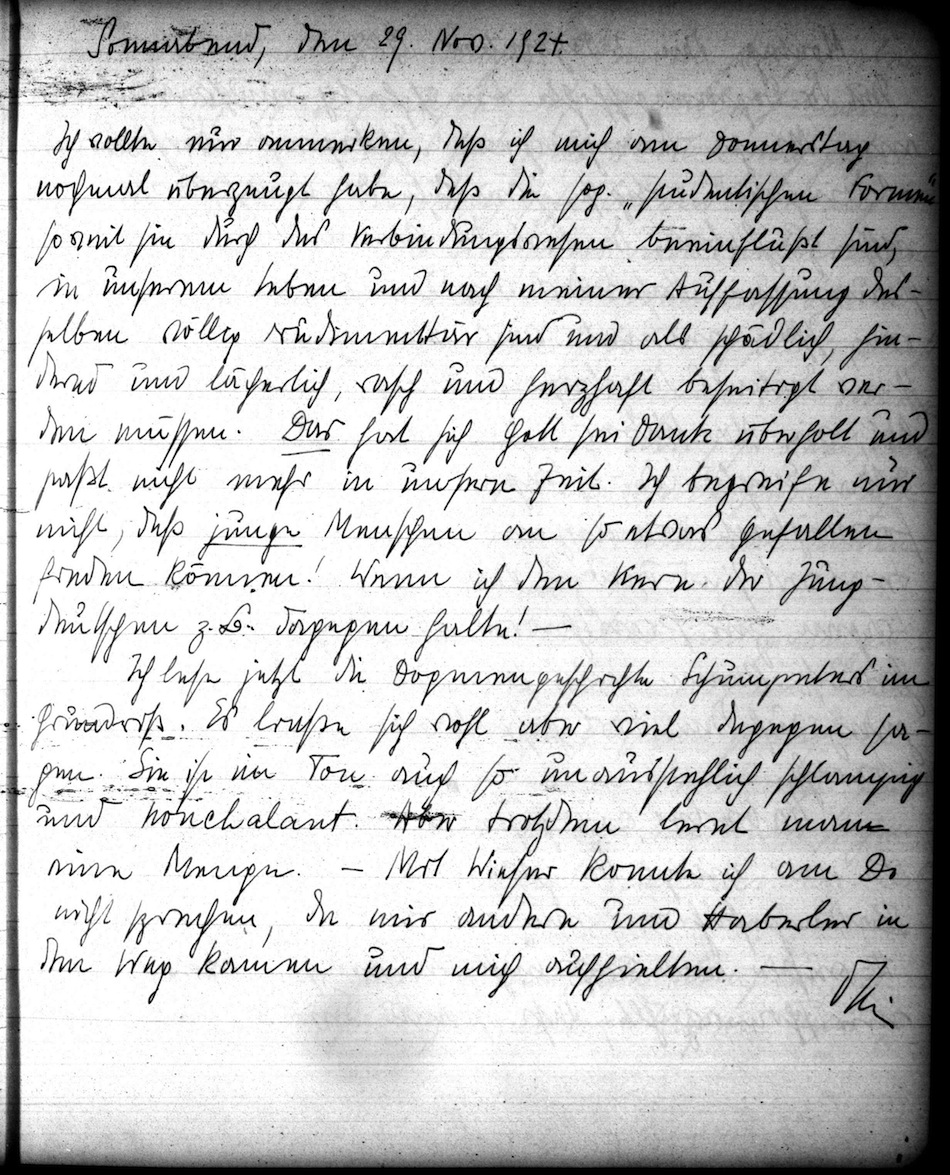 Sonnabend, den 29. Nov. 1924.
Ich wollte nur anmerken, daß ich mich am Donnerstag
nochmal überzeugt habe, daß die sog. „studentischen Formen"
soweit sie durch das Verbindungswesen beeinflußt sind,
in unserem Leben und nach meiner Auffassung des-
selben völlig rudimentär sind und als schädlich, hin-
dernd und lächerlich, rasch und herzhaft beseitigt wer-
den müssen. Das hat sich Gott sei Dank überholt und
paßt nicht mehr in unsere Zeit. Ich begreife nur
nicht, daß junge Menschen an so etwas gefallen
finden können! Wenn ich den Kern der Jung-
deutschen z. B. dagegen halte! —
Ich lese jetzt die Dogmengeschichte Schumpeters im
Grundriß. Es ließe sich wohl aber viel dagegen sa-
gen. Sie ist im Ton auch so unausstehlich schlampig
und nonchalant. Aber trotzdem lernt man
eine Menge. — Mit Wieser konnte ich am Do
nicht sprechen, da mir andere und Haberler in
den Weg kamen und mich aufhielten. —